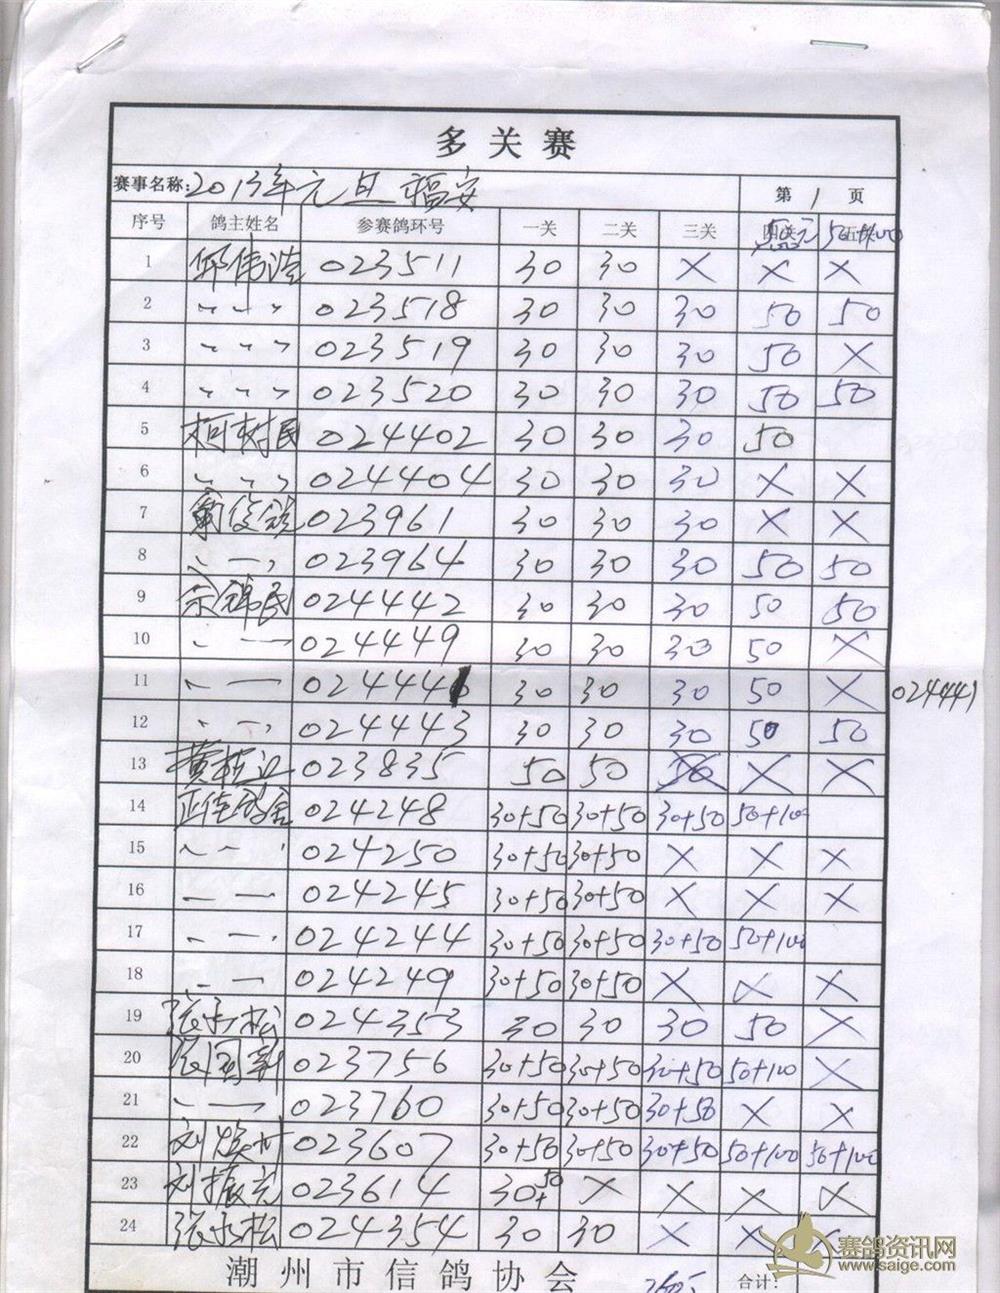 多关赛
赛事名称: 2013年元旦 福安 第 1 页
序号 鸽主姓名 参赛鸽环号 一关 二关 三关
1 邬伟浩 023511 30 30 × × ×
2 〃 〃 〃 023518 30 30 30 50 50
3 〃 〃 〃 023519 30 30 30 50 ×
4 〃 〃 〃 023520 30 30 30 50 50
5 柯树民 024402 30 30 30 50
6 〃 〃 〃 024404 30 30 30 × ×
7 023961 30 30 30 × ×
8 〃 〃 023964 30 30 30 50 50
9 锦民 024442 30 30 30 50 50
10 〃 — 024449 30 30 30 50 ×
11 〃 — 024441 30 30 30 50 × 024441
12 〃 〃 024443 30 30 30 50 50
13 黄 023835 50 50 50 × ×
14 正佳鸽舍 024248 30+50 30+50 30+50 50+100
15 〃 — 〃 024250 30+50 30+50 × × ×
16 — — 024245 30+50 30+50 × × ×
17 〃 — 024244 30+50 30+50 30+50 50+100
18 〃 — 024249 30+50 30+50 × × ×
19 张永松 024353 30 30 30 50 ×
20 张国新 023756 30+50 30+50 30+50 50+100 ×
21 〃 — 〃 023760 30+50 30+50 30+50 × ×
22 刘 023607 30+50 30+50 30+50 50+100 50+100
23 刘振 023614 30+50 × × × ×
24 张永松 024354 30 30 × × ×
潮州市信鸽协会 合计:
赛鸽资讯网
www.saige.com